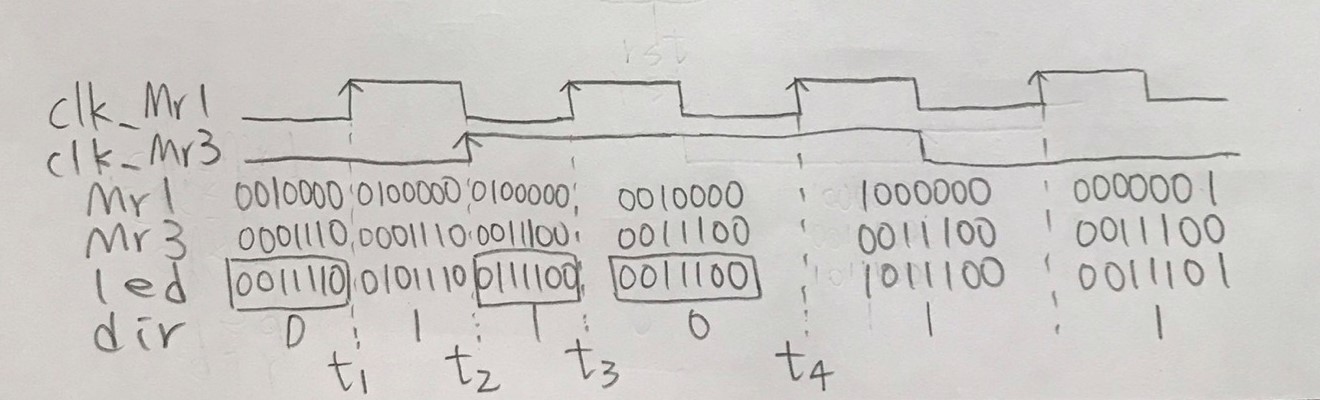 rst
clk_Mr1
clk_Mr3
Mr1 0010000 0100000 0100000 0010000 1000000 0000001
Mr3 0001110 0001110 0011100 0011100 0011100 0011100
led 0011110 0101110 0111100 0011100 1011100 0011101
dir 0 1 1 0 1 1
t1 t2 t3 t4